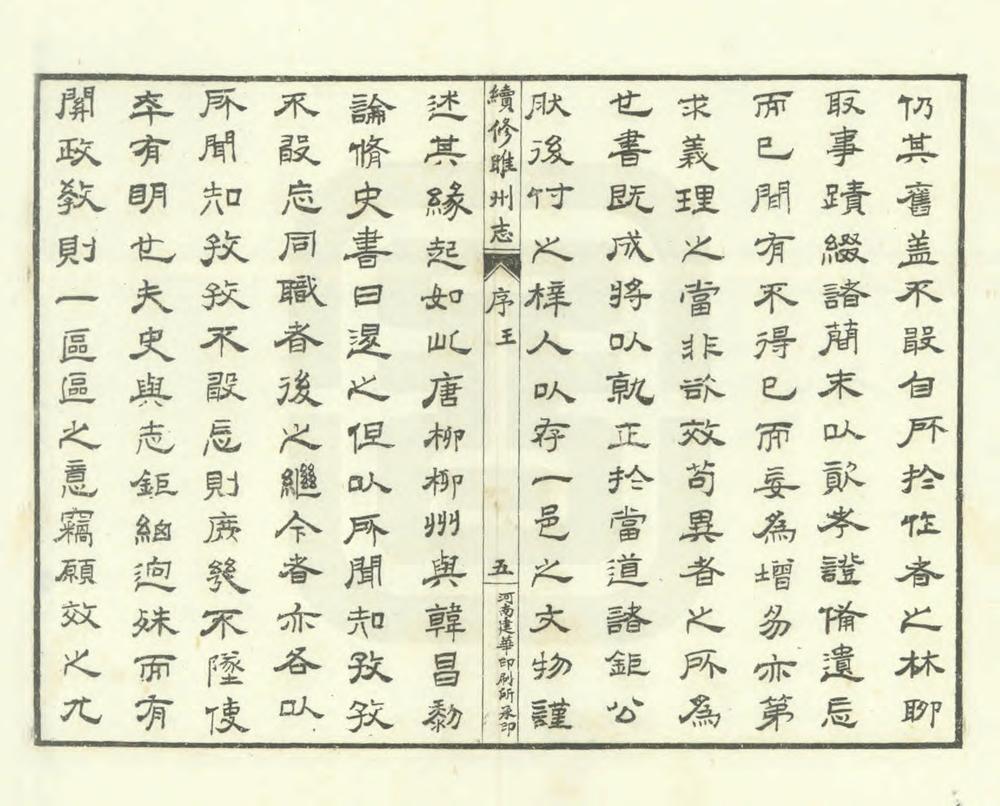 仍其舊盖不敢自所扵作者之林聊
取事蹟綴諸簡末以資考證備遺忘
而已間有不得已而妄為增易亦第
求義理之當非欲效苟異者之所為
也書既成將以就正扵當道諸鉅公
肰後付之梓人以存一邑之文物謹
續修睢州志 序王 五 河南建華印刷所承印
述其緣起如此唐柳柳州與韓昌黎
論脩史書曰退之但以所聞知孜孜
不敢忘同職者後之繼今者亦各以
所聞知孜孜不敢忘則庶幾不墜使
卒有明也夫史與志鉅細逈殊而有
關政教則一區區之意竊願效之尤